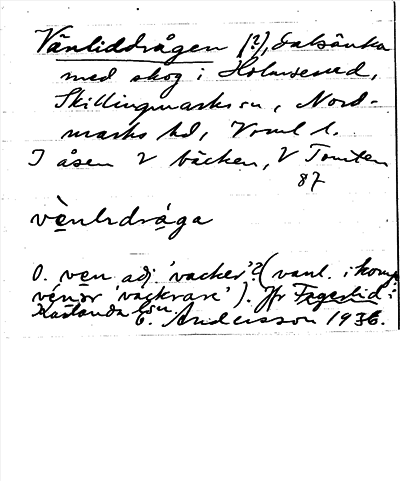 Vänliddrågen (?), dalsänka
med skog i Holmserud,
Skillingmarks sn, Nord-
marks hd, Vrml l.
I åsen V bäcken, V Tomten
87
vènlıdrága
O. ven adj 'vacker'? (vanl. i komp.
vénǝr 'vackrare'). Jfr Fagerlid i
Karlanda sn.
E. Andersson 1936.